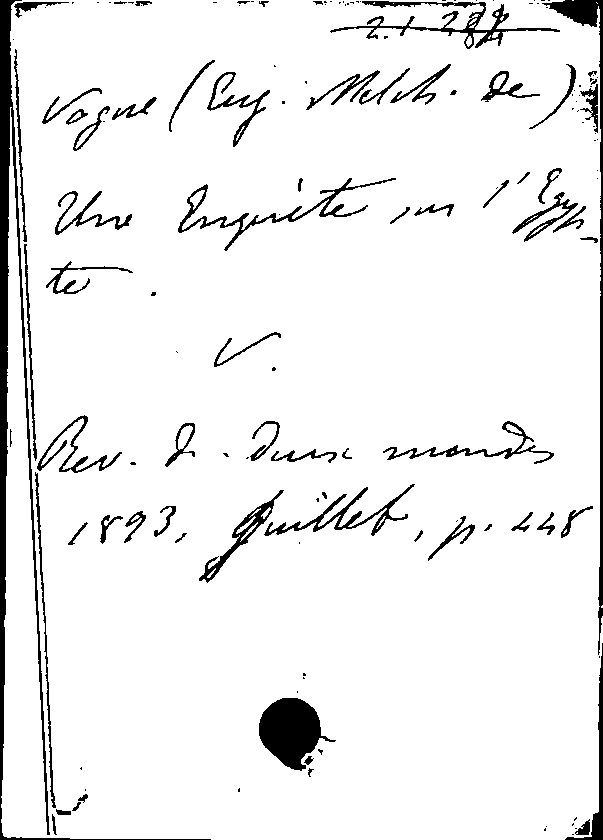 Vogue (Eug. Melch. de)
Une Enquête sur l'Egyp-
te.
V.
Rev. d. deux mondes
1893, Juillet, p. 448